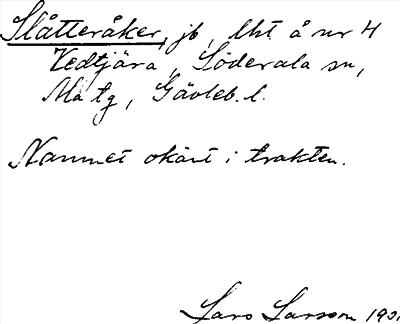 Slåtteråker, jb, lht å nr 4
Vedtjära, Söderala sn,
Ma tg, Gävleb. l.
Namnet okänt i trakten.
Lars Larsson